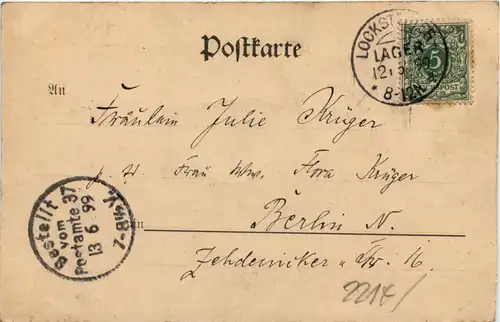 Postkarte
LOCKSTEDTER
LAGER
12. 6. 99
* 8-12N.
5
REICHSPOST
An
Fräulein Julie Krüger
p. Ad. Frau Ww. Flora Krüger
in
Berlin N.
Zehdenicker Str. 16
Bestellt
vom
Postamte 37
13 6 99
7-8½V.
221t/